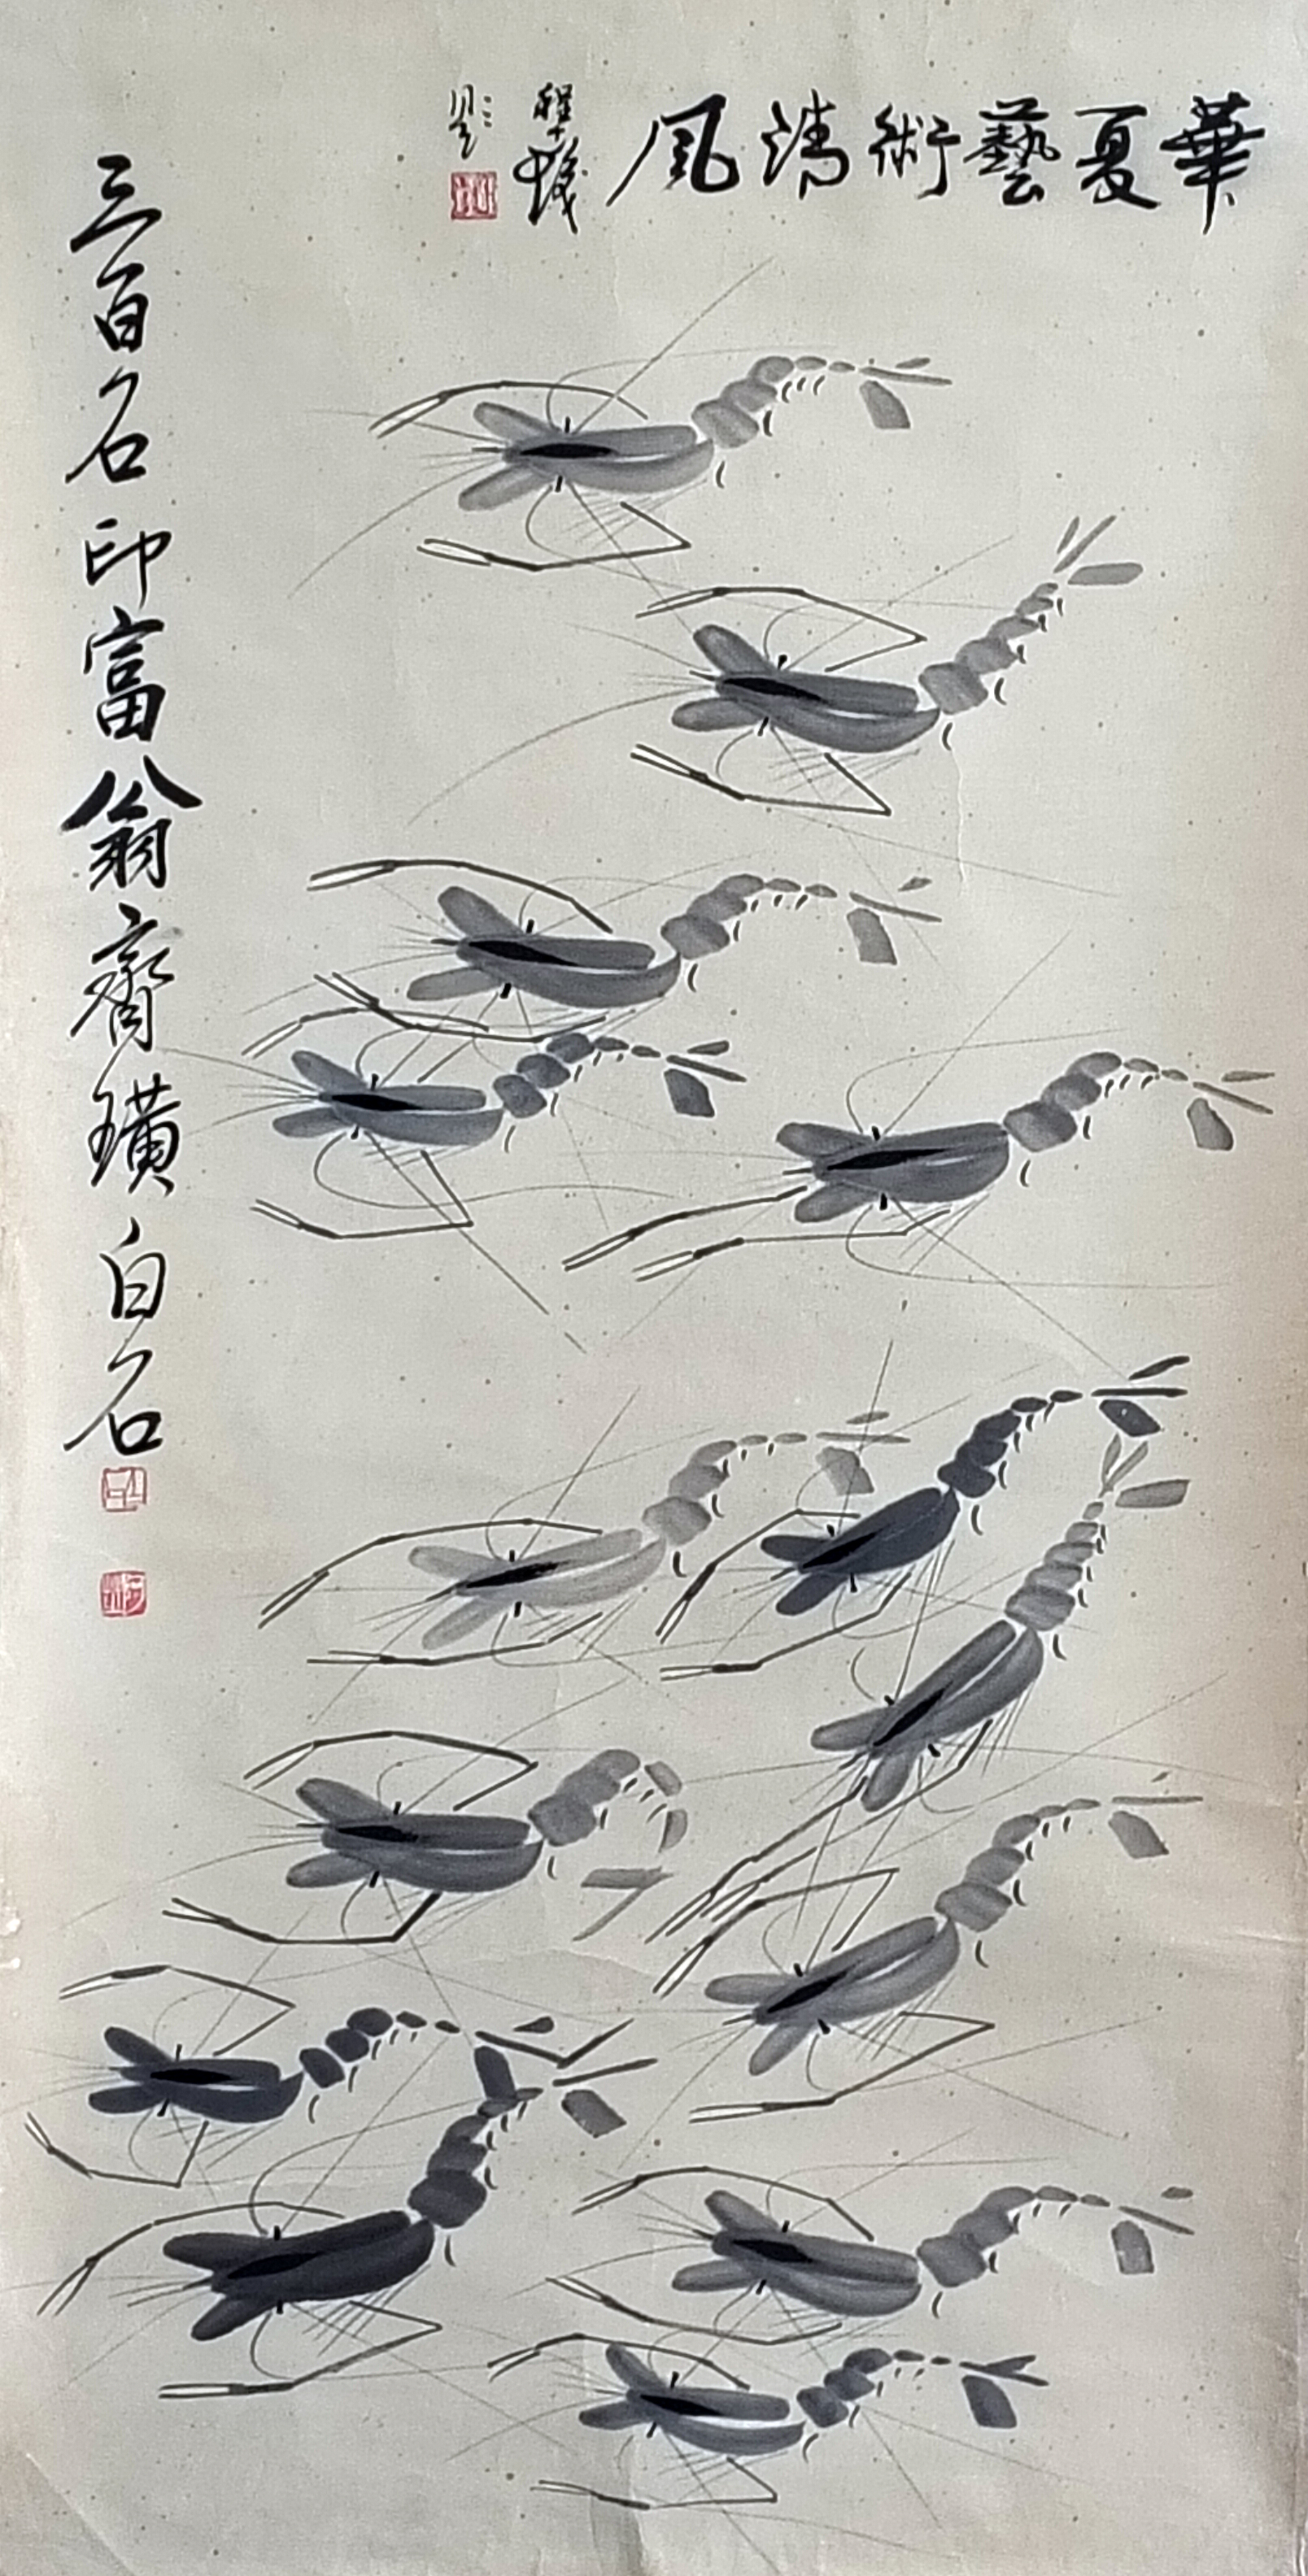 華夏藝術清風
三百石印富翁齊璜白石